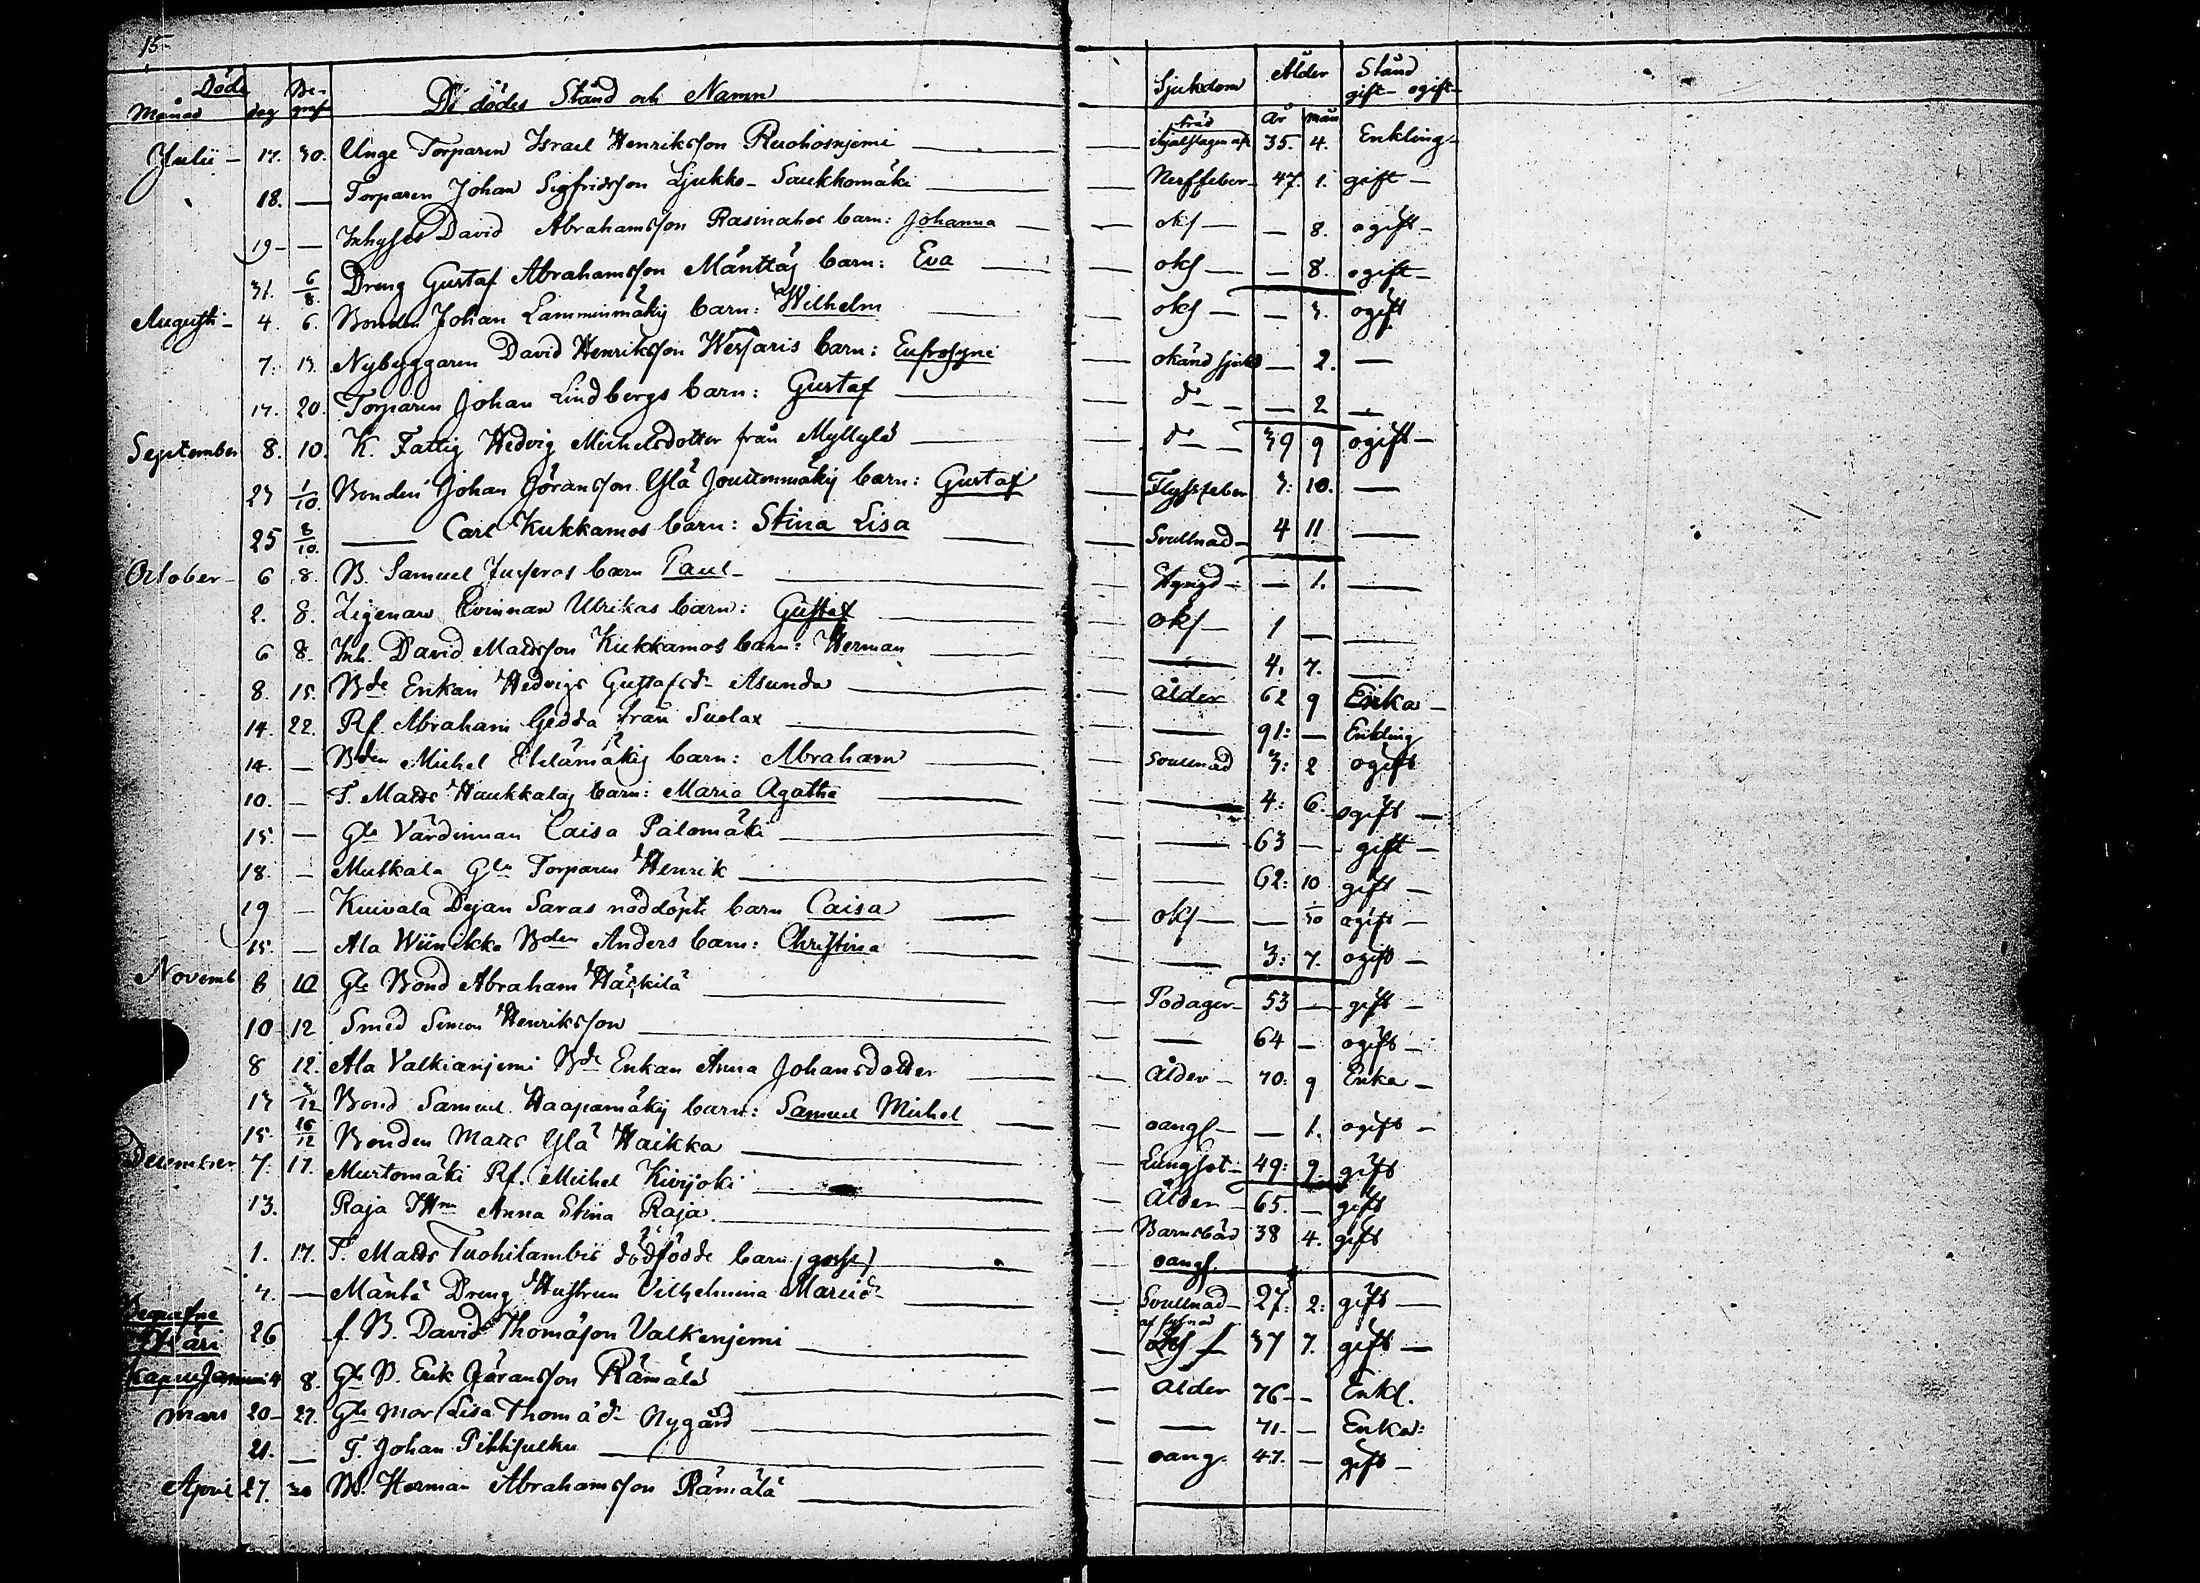 15
Döde Be- De dödes Stånd och Namn Sjukdom Ålder Stånd
Månad dag graf År mån gift- ogift-
Julii - 17. 30. Unge Torparen Israel Henriksson Ruohosnjemi ihjälslagen af träd 35. 4. Enkling-
18. — Torparen Johan Sigfridsson Ljukko- Saukkomäki Nerffeber- 47. 1. gift-
19- — Inhyses David Abrahamsson Rasinahos barn: Johanna oks — 8. ogift-
31. 6/8. Dreng Gustaf Abrahamsson Mänttäj barn: Eva oks — 8. ogift-
Augusti- 4. 6. Bonden Johan Lamminmäkij barn: Wilhelm oks — 3. ogift
7. 13. Nybyggaren David Henriksson Wesaris barn: Eufrosyne okänd sjukd — 2. —
17. 20. Torparen Johan Lindbergs barn: Gustaf d- — 2 —
September 8. 10. K. Fattig Hedvig Michelsdotter från Myllylä d- 39 9 ogift-
23 1/10. Bonden Johan Göransson Ylä Jouttenmäkij barn: Gustaf Flyssfeber 3: 10. —
25 8/10. — Carl Kukkamos barn: Stina Lisa Svullnad- 4 11 —
October- 6 8. B. Samuel barn Paul- — 1. —
2. 8. Zigenare Qvinnan Ulrikas barn: Gustaf oks 1 — —
6 8. Inh. David Mattsson Kukkamos barn: Herman — 4. 7. —
8. 15. Bde Enkan Hedvigs Gustafsd- Asunda ålder 62 9 Enka-
14. 22. Rf. Abraham Gedda från Suolax — 91: — Enkling
14. — Bden Michel Ehelämäkij barn: Abraham Svullnad 3: 2 ogift
10. — T. Matts Haukkalaj barn: Maria Agatha — 4: 6. ogift —
15. — Gla Värdinnan Caisa Palomäki — 63 — gift-
18. — Mutkala Gla Torparen Henrik — 62: 10 gift-
19 — Kuivala Dejan Saras noddöpte barn Caisa oks — 1/30 ogift-
15. — Ala Wiinikka Bden Anders barn: Christina — 3: 7. ogift-
Novemb 6 12 Gla Bond Abraham Häkkilä Podager- 53 — gift-
10 12 Smed Simon Henriksson — 64 — ogift-
8 12. Ala Valkianjemi Bde Enkan Anna Johansdotter ålder- 70: 9 Enka-
13 3/12 Bond Samuel Haapamäkij barn: Samuel Michel oangf- — 1. ogift-
15. 16/12 Bonden Matts Ylä Haikka Lungsot- 49: 9. gift
December 7. 17. Murtomäki Rf. Michel Kivijoki Ålder 65. — gift
13. Raja Anna Stina Raja. Barnsbörd 38 4. gift
1. 17. T. Matts Tuohilambis dödfödde barn (gosse) oangf.
4. — Mäntä Dreng Hustrun Vilhelmina Mariæd- Svullnad- 27: 2: gift —
Begrafne 26 f. B. David Thomasson Valkenjemi 37 7. gift —
i Kari
Kapell Januari 4 8. Gla B. Erik Göransson Rämälä ålder 76- — Enkl.
Mars 20- 27. Gla Mor Lisa Thomæd- Nygård — 71- — Enka:
21. — T. Johan Pihtjulku oang- 47. — gift-
April 27. 30 B. Herman Abrahamsson Rämälä